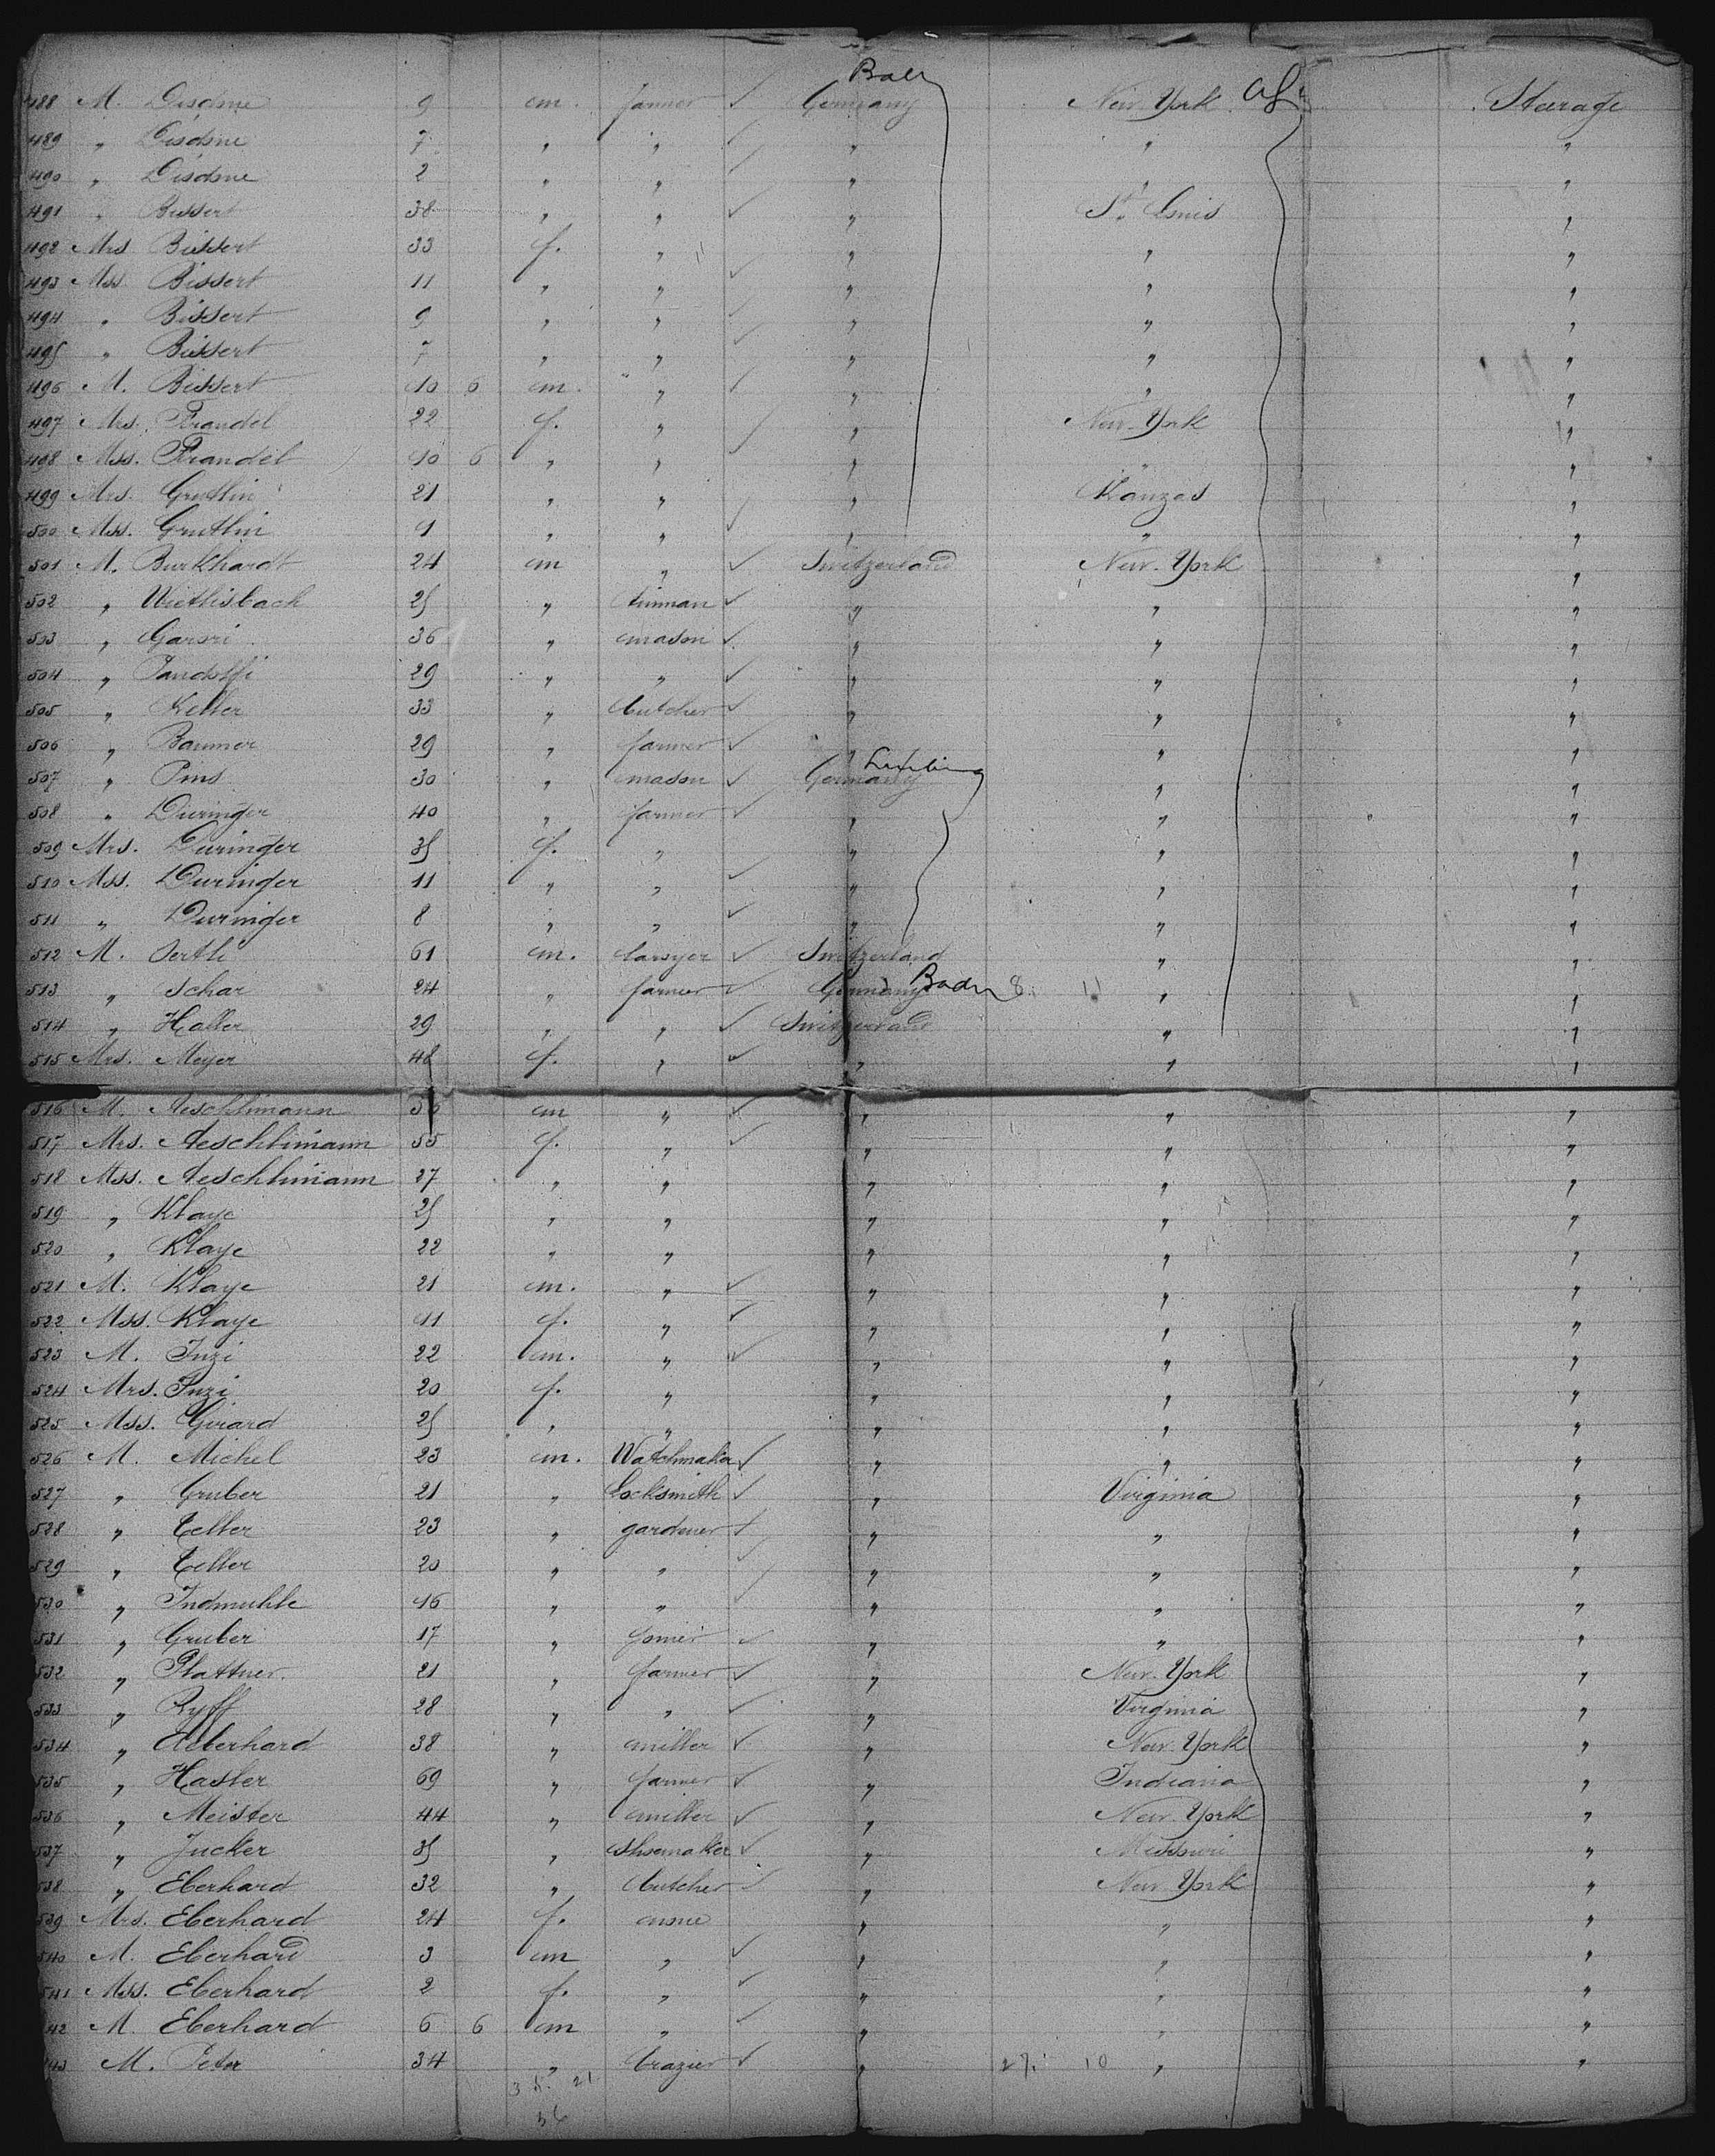 Baden
488 M. Disdme 9 m. farmer ✓ Germany New York Steerage
489 " Disdme 7 " " ✓ " " "
490 " Disdme 2 " " ✓ " " "
491 " Bissert 38 " " ✓ " St Louis "
492 Mrs Bissert 33 f. " " " "
493 Mss. Bissert 11 " " ✓ " " "
494 " Bissert 9 " " ✓ " " "
495 " Bissert 7 " " ✓ " " "
496 M. Bissert 10 6 m. " ✓ " " "
497 Mrs. Frandel 22 f. " ✓ " New York "
498 Mss. Frandel 10 6 " " ✓ " " "
499 Mrs. Gruthin 21 " " ✓ " Kanzas "
500 Mss. Gruthin 1 " " ✓ " " "
501 M. Burkhardt 24 m " ✓ Switzerland New York "
502 " Wiethisbach 25 " tinman ✓ " " "
503 " Garsri 36 " mason ✓ " " "
504 " Jandolfi 29 " " ✓ " " "
505 " Keller 33 " butcher ✓ " " "
506 " Baumer 29 " farmer ✓ " " "
507 " Pins 30 " mason ✓ Germany " "
508 " Duringer 40 " farmer ✓ " " "
509 Mrs. Duringer 35 f. " " " "
510 Mss. Duringer 11 " " ✓ " " "
511 " Duringer 8 " " ✓ " " "
512 M. Oertli 61 m. lawyer ✓ Switzerland " "
513 " Schar 24 " farmer ✓ Germany Baden 8. 11 " "
514 " Haller 29 " " ✓ Switzerland " "
515 Mrs. Meyer 48 f. " ✓ " " "
516 M. Aeschlimann 56 m " ✓ " " "
517 Mrs. Aeschlimann 55 f. " ✓ " " "
518 Mss. Aeschlimann 27 " " " " "
519 " Klaye 25 " " " " "
520 " Klaye 22 " " " " "
521 M. Klaye 21 m. " ✓ " " "
522 Mss. Klaye 11 f. " ✓ " " "
523 M. Inzi 22 m. " ✓ " " "
524 Mrs. Inzi 20 f. " " " "
525 Mss. Girard 25 " " " " "
526 M. Michel 23 m. Watchmaker ✓ " " "
527 " Gruber 21 " locksmith ✓ " Virginia "
528 " Celler 23 " gardener ✓ " " "
529 " Celler 20 " " ✓ " " "
530 " Indmuhle 16 " " ✓ " " "
531 " Gruber 17 " ✓ " " "
532 " Plattner 21 " farmer ✓ " New York "
533 " Ryff 28 " " ✓ " Virginia "
534 " Aeberhard 38 " miller ✓ " New York "
535 " Hasler 69 " farmer ✓ " Indiana "
536 " Meister 44 " miller ✓ " New York "
537 " Jucker 35 " shoemaker ✓ " Missouri "
538 " Eberhard 32 " butcher ✓ " New York "
539 Mrs. Eberhard 24 f. none " " "
540 M. Eberhard 3 m " ✓ " " "
541 Mss. Eberhard 2 f. " ✓ " " "
42 M. Eberhard 6 6 m " ✓ " " "
43 M. Peter 34 " brazier ✓ " 27. 10 " "
21
36